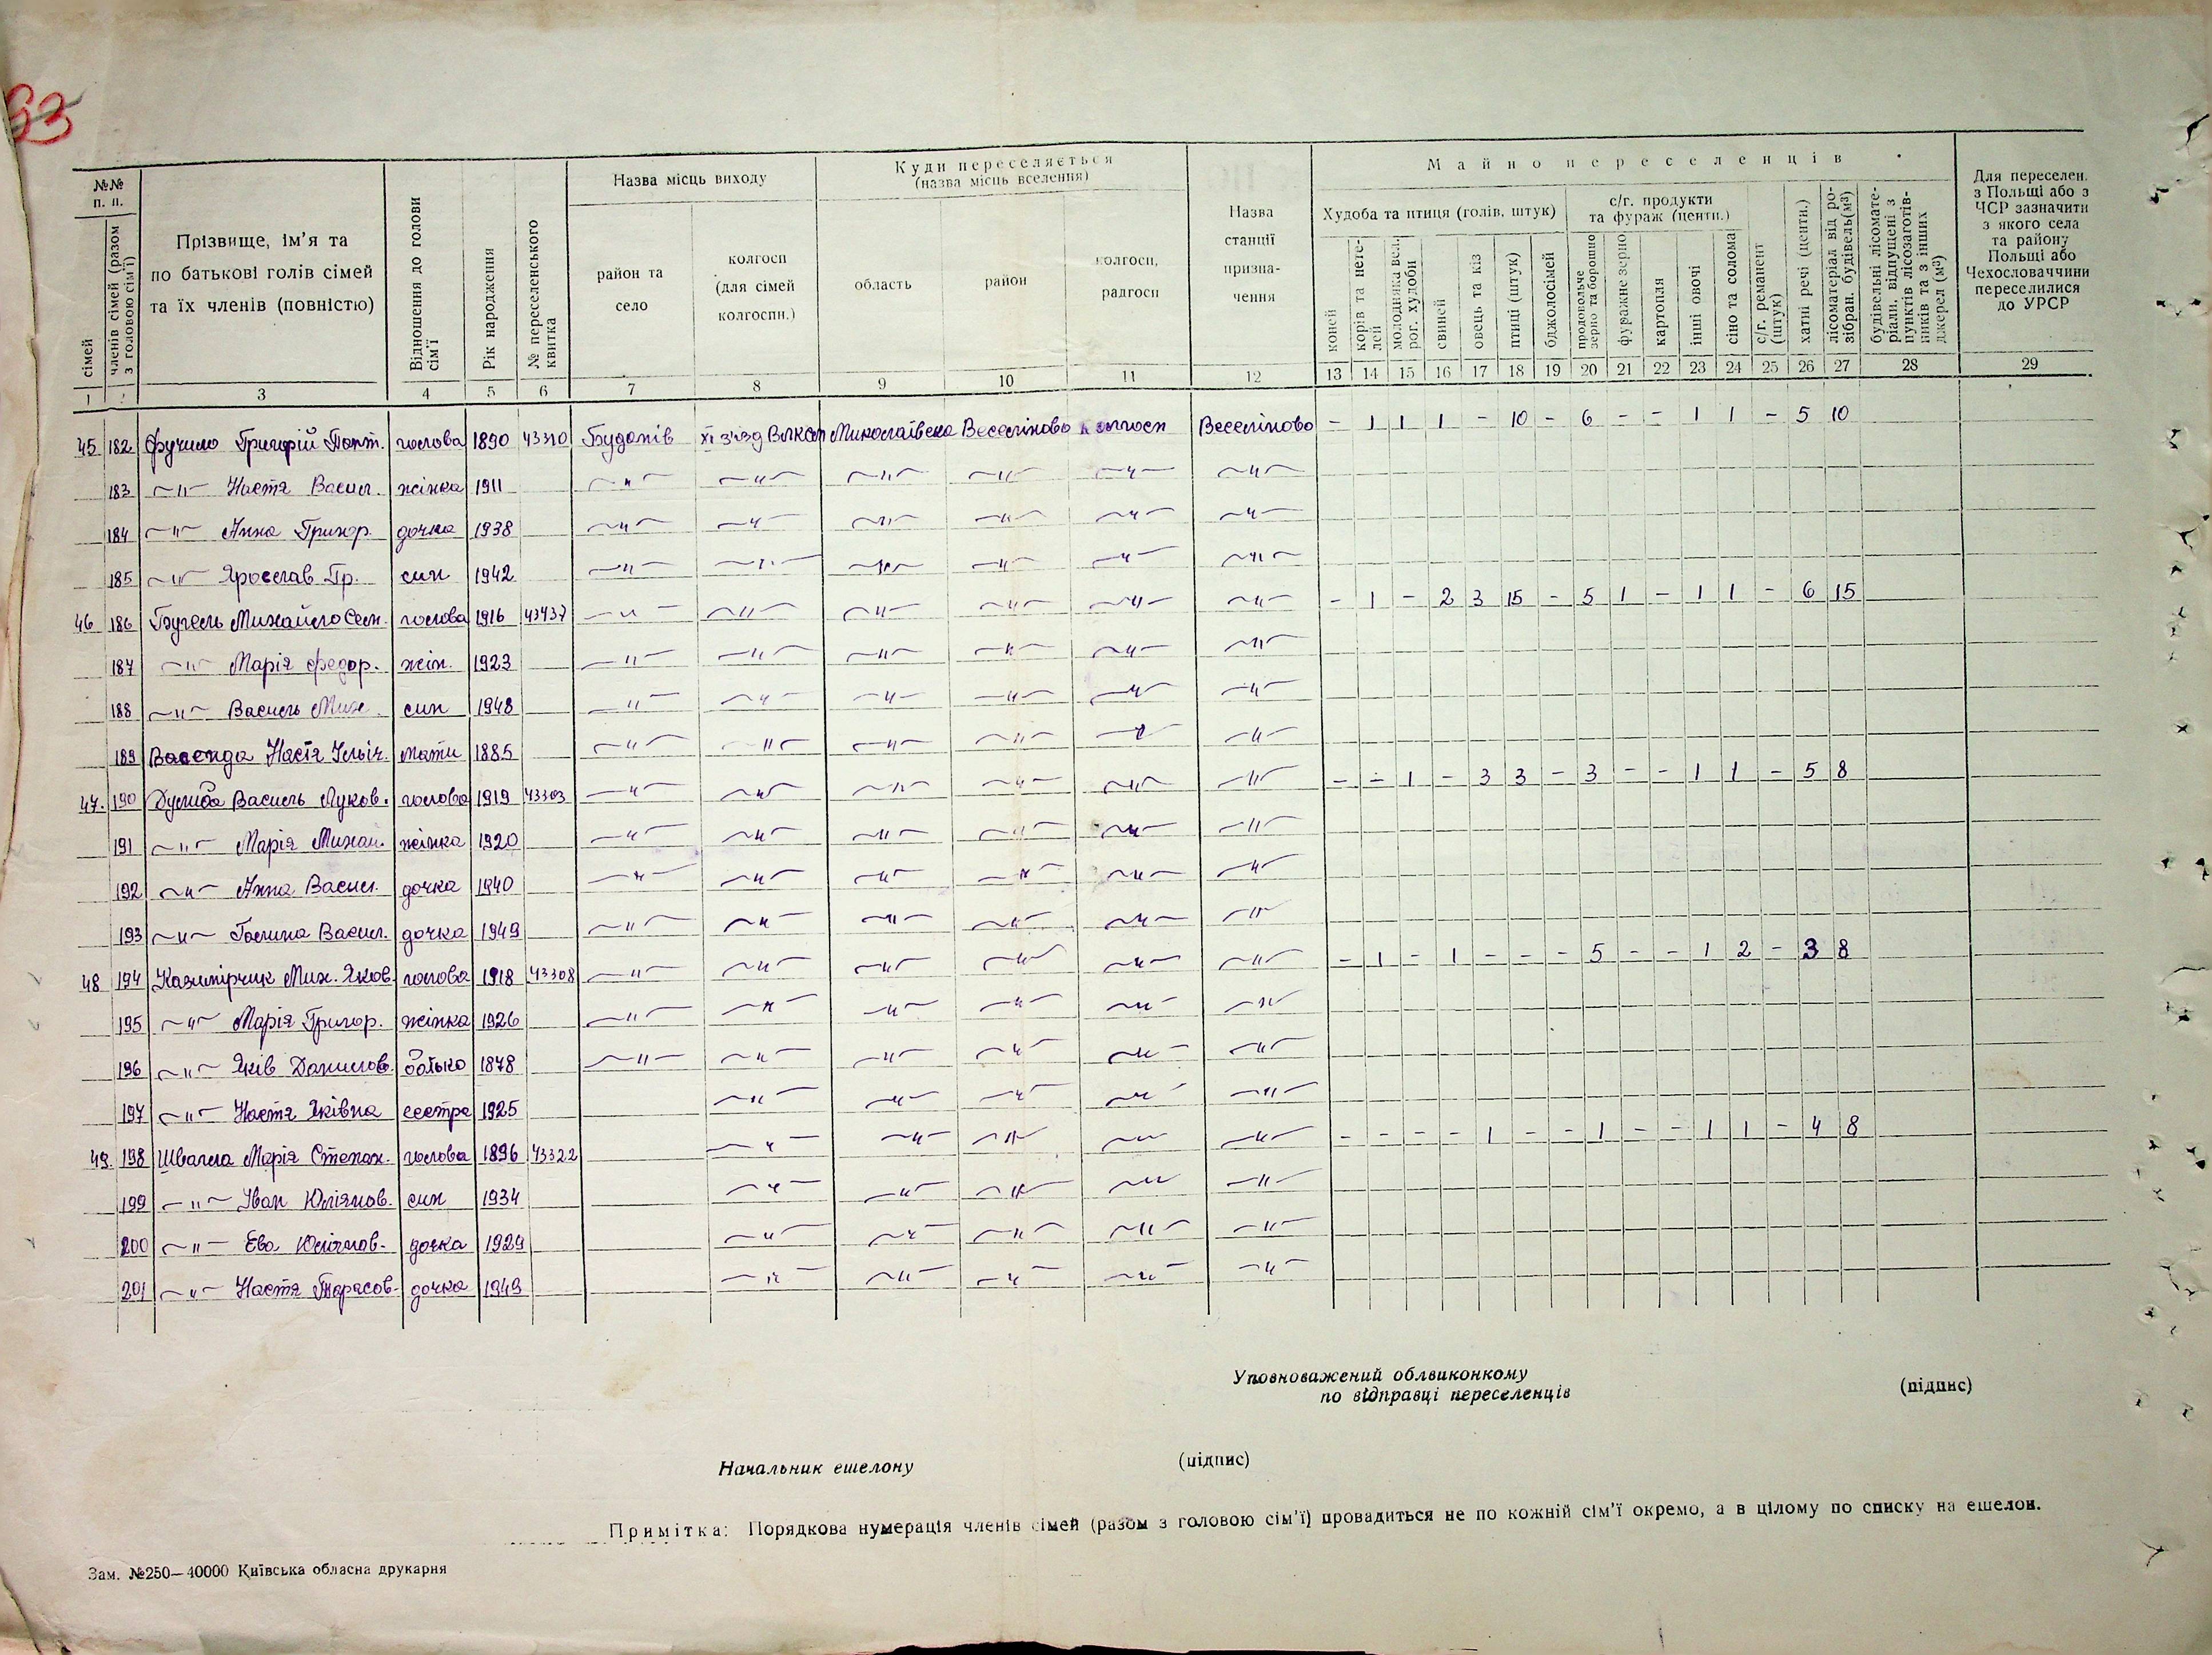 93
№№ п. п.
сімей
членів сімей (разом з головою сім'ї)
Прізвище, ім'я та по батькові голів сімей та їх членів (повністю)
Відношення до голови сім'ї
Рік народження
№ переселенського квитка
Назва місць виходу
район та село
колгосп (для сімей колгоспн.)
Куди переселяється (назва місць вселення)
область
район
колгосп, радгосп
Назва станції призначення
Майно переселенців
Худоба та птиця (голів, штук)
коней
корів та нетелей
молодняка вел. рог. худоби
свиней
овець та кіз
птиці (штук)
бджолосімей
с/г. продукти та фураж (центн.)
продовольче зерно та борошно
фуражне зерно
картопля
інші овочі
сіно та солома
с/г. реманент (штук)
хатні речі (центн.)
лісоматеріал від розібран. будівель (м³)
будівельні лісоматеріали, відпущені з пунктів лісозаготівників та з інших джерел (м³)
Для переселен. з Польщі або з ЧСР зазначити з якого села та району Польщі або Чехословаччини переселилися до УРСР
1 2 3 4 5 6 7 8 9 10 11 12 13 14 15 16 17 18 19 20 21 22 23 24 25 26 27 28 29
45 182 Фучило Григорій Пант. голова 1890 43310 Буданів XI з'їзд Миколаївська Веселіново колгосп Веселіново - 1 1 1 - 10 - 6 - - 1 1 - 5 10
183 —"— Настя Васил. жінка 1911 —"— —"— —"— —"— —"— —"—
184 —"— Анна Григор. дочка 1938 —"— —"— —"— —"— —"— —"—
185 —"— Ярослав Гр. син 1942 —"— —"— —"— —"— —"— —"—
46 186 Бугель Михайло Сем. голова 1916 43437 —"— —"— —"— —"— —"— —"— - 1 - 2 3 15 - 5 1 - 1 1 - 6 15
187 —"— Марія Федор. жін. 1923 —"— —"— —"— —"— —"— —"—
188 —"— Василь Мих. син 1948 —"— —"— —"— —"— —"— —"—
189 Настя Ільїч. мати 1885 —"— —"— —"— —"— —"— —"—
47. 190 Дулиба Василь Луков. голова 1919 43303 —"— —"— —"— —"— —"— —"— - - 1 - 3 3 - 3 - - 1 1 - 5 8
191 —"— Марія Михай. жінка 1920 —"— —"— —"— —"— —"— —"—
192 —"— Анна Васил. дочка 1940 —"— —"— —"— —"— —"— —"—
193 —"— Галина Васил. дочка 1949 —"— —"— —"— —"— —"— —"—
48 194 Казимірчик Мих. Яков. голова 1918 43308 —"— —"— —"— —"— —"— —"— - 1 - 1 - - - 5 - - 1 2 - 3 8
195 —"— Марія Григор. жінка 1926 —"— —"— —"— —"— —"— —"—
196 —"— Яків Данилов. батько 1878 —"— —"— —"— —"— —"— —"—
197 —"— Настя Яківна сестра 1925 —"— —"— —"— —"— —"—
49. 198 Швагла Марія Степан. голова 1896 43322 —"— —"— —"— —"— —"— - - - - 1 - - 1 - - 1 1 - 4 8
199 —"— Іван Юліянов. син 1934 —"— —"— —"— —"— —"—
200 —"— Ева Юліянов. дочка 1929 —"— —"— —"— —"— —"—
201 —"— Настя Тарасов. дочка 1949 —"— —"— —"— —"— —"—
Уповноважений облвиконкому
по відправці переселенців (підпис)
Начальник ешелону (підпис)
Примітка: Порядкова нумерація членів сімей (разом з головою сім'ї) провадиться не по кожній сім'ї окремо, а в цілому по списку на ешелон.
Зам. №250—40000 Київська обласна друкарня